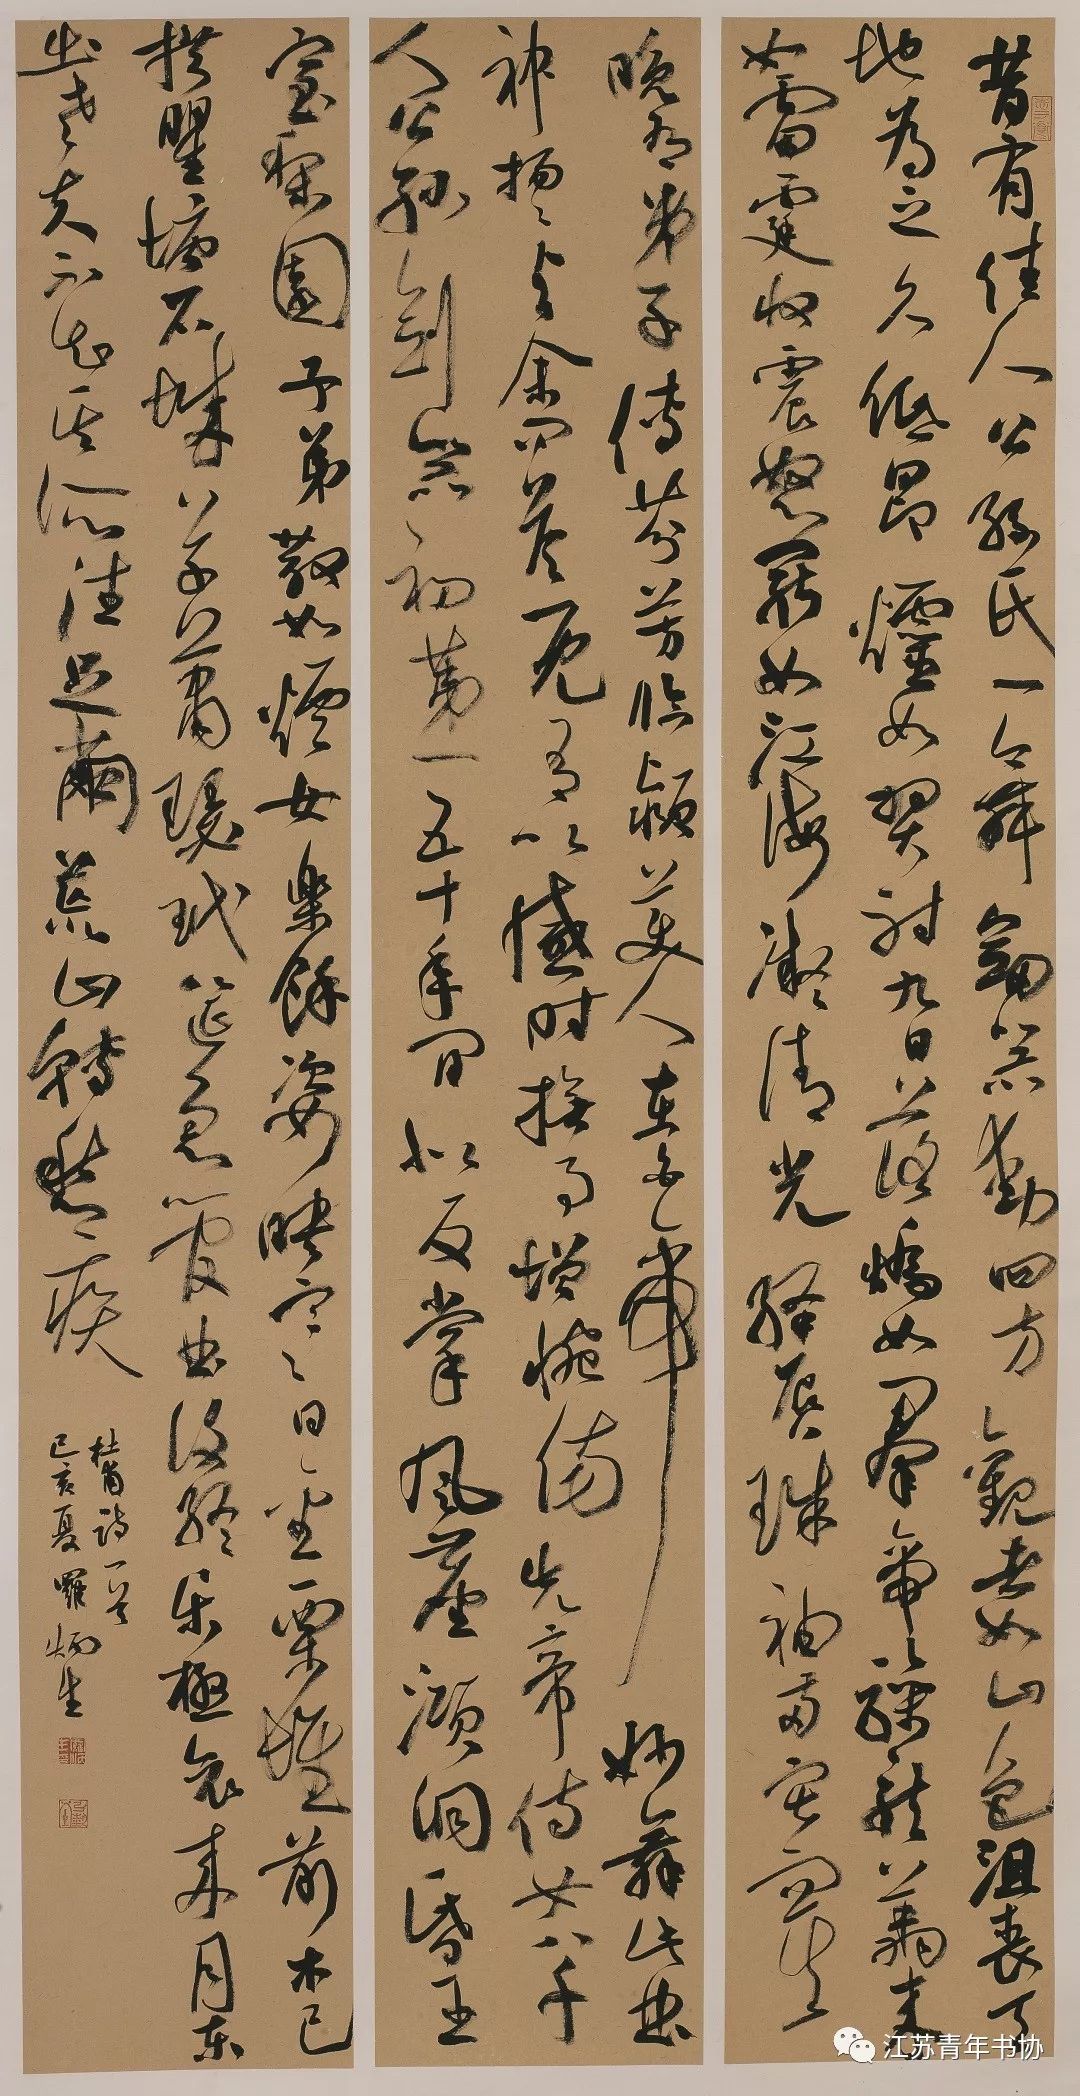 昔有佳人公孫氏一舞劍器動四方觀者如山色沮喪天
地為之久低昂㸌如羿射九日落矯如群帝驂龍翔来
如雷霆收震怒罷如江海凝清光絳唇珠袖兩寂寞
晚有弟子傳芬芳臨潁美人在白帝妙舞此曲
神揚揚与余問答既有以感时撫事增惋傷先帝侍女八千
人公孫劍器初第一五十年间似反掌風塵澒洞昏王
室梨園子弟散如煙女樂餘姿映寒日金粟堆前木已
拱瞿塘石城草萧瑟玳筵急管曲復終乐極哀来月東
出老夫不知其所往足繭荒山轉愁疾
杜甫詩一首
己亥夏羅炳生
江苏青年书协